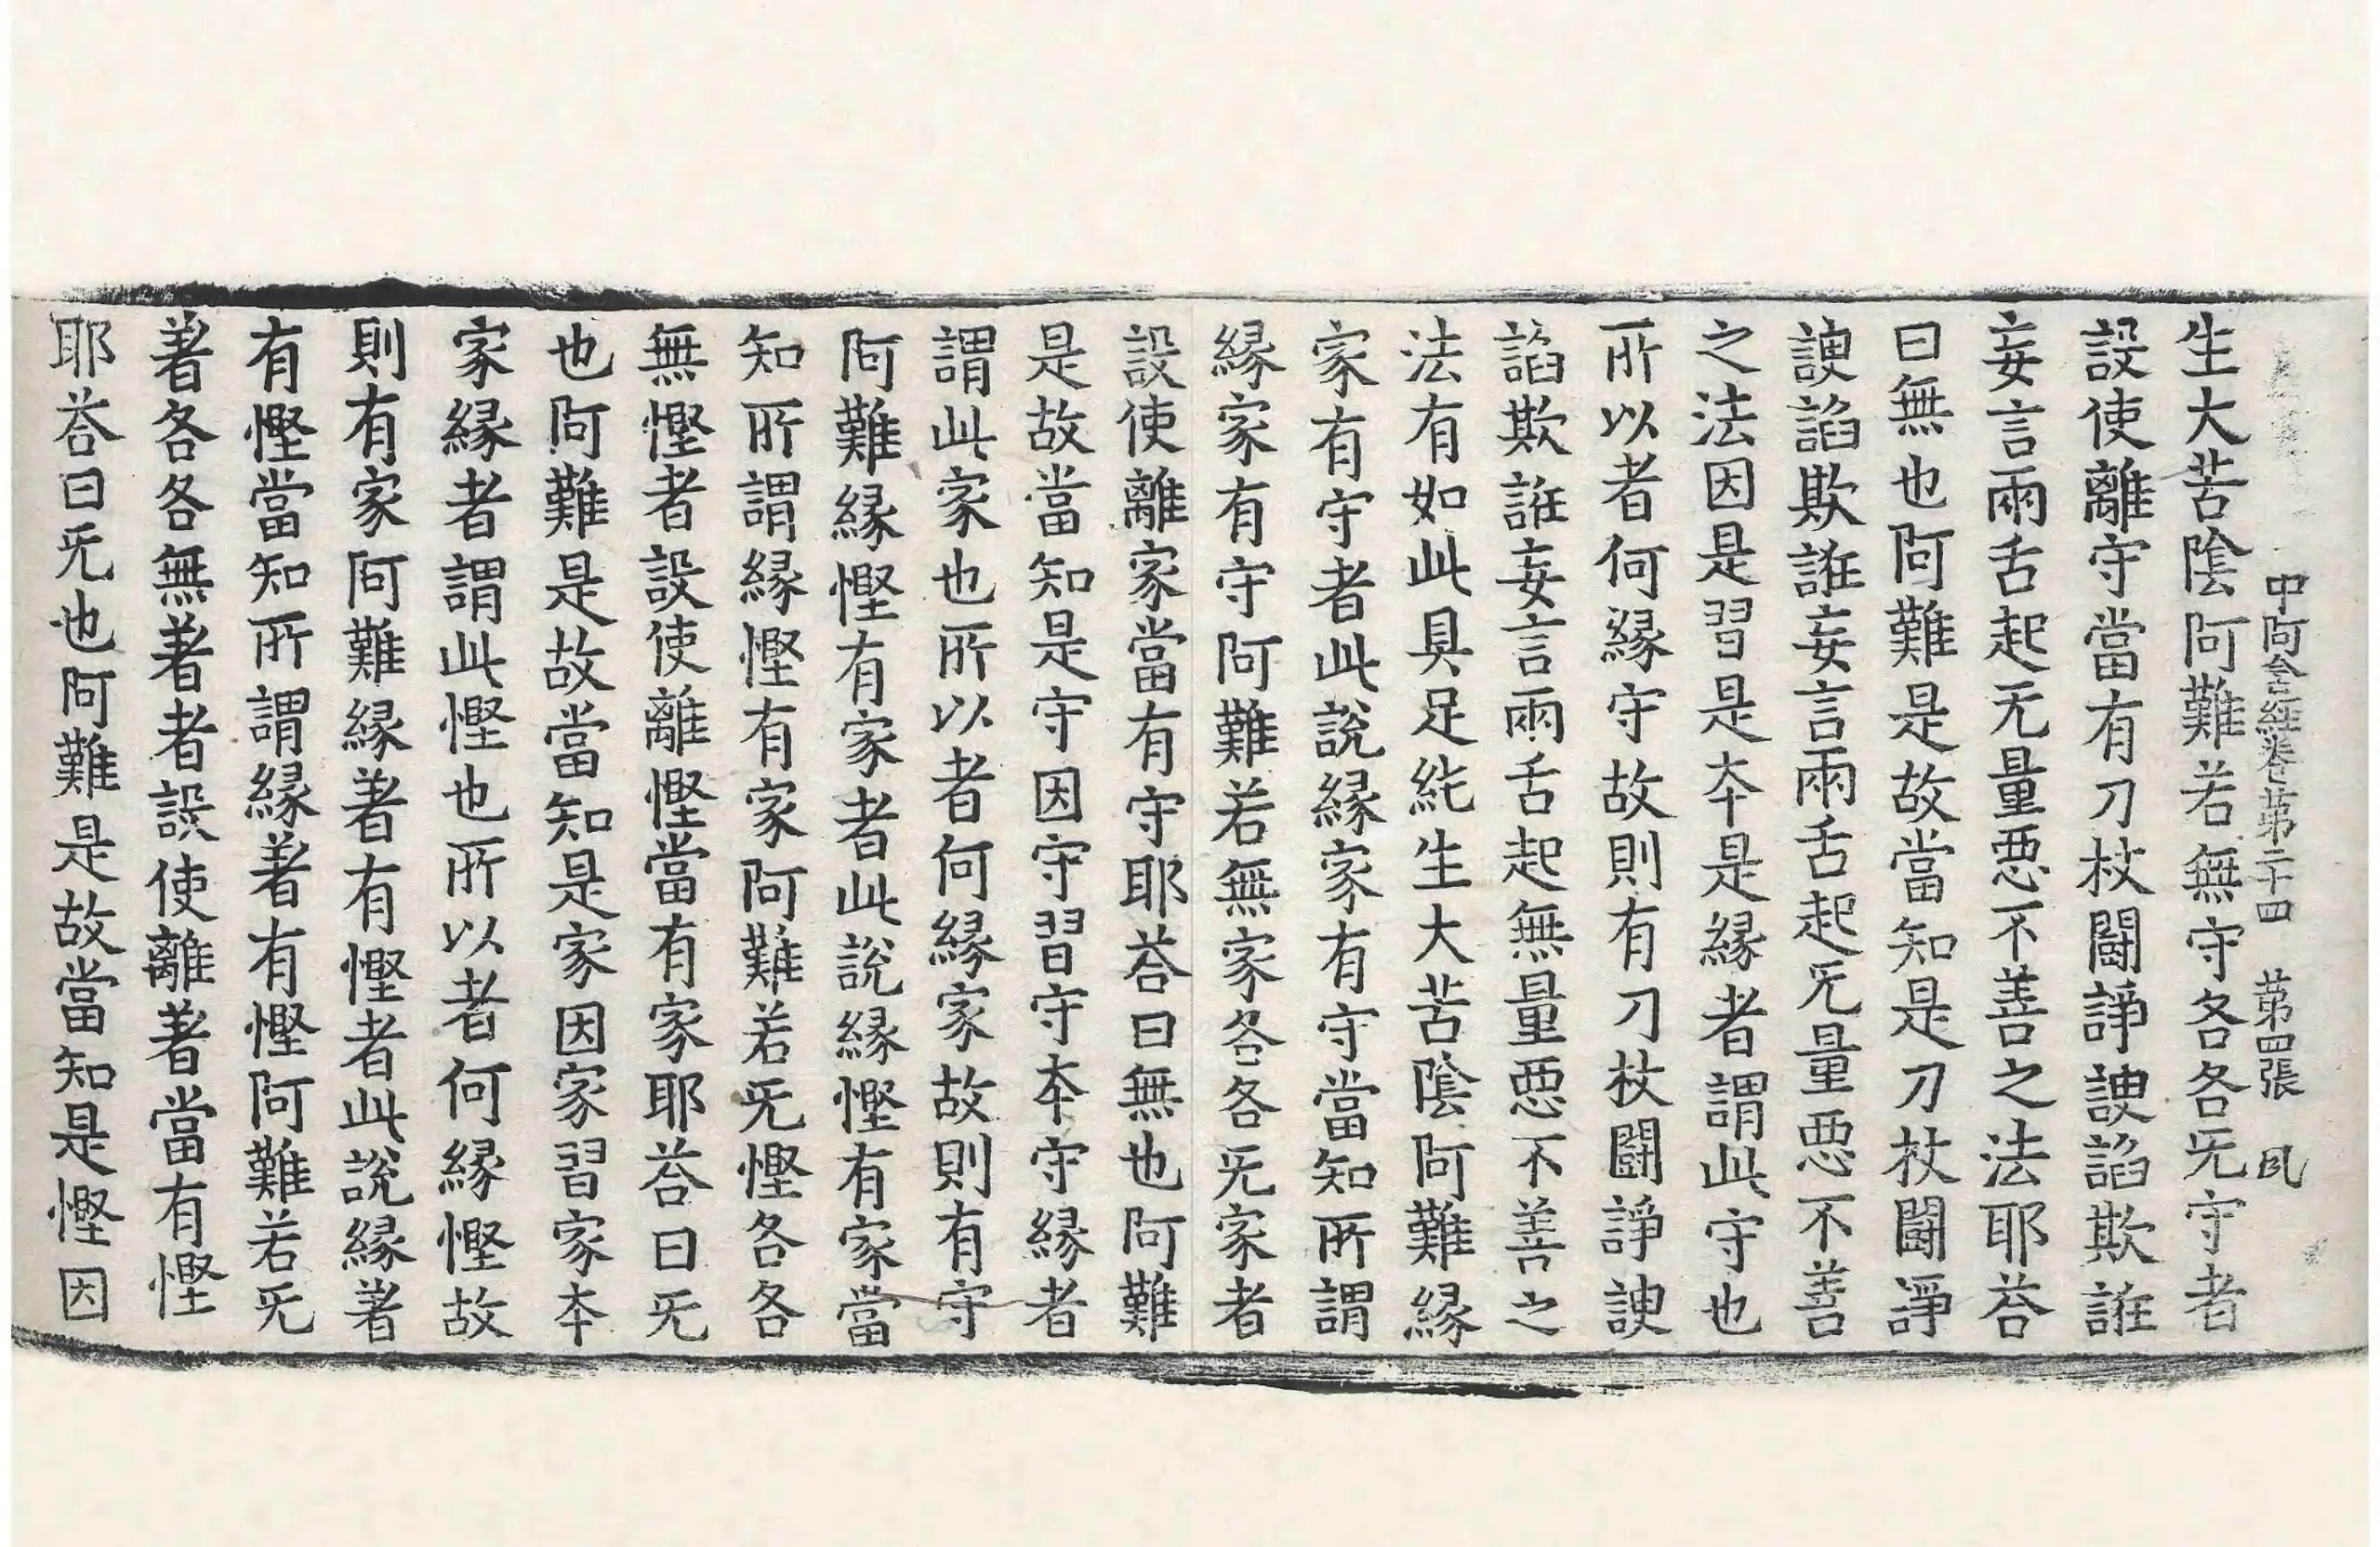 中阿含經卷第二十四 第四張 凨
生大苦陰阿難若無守各各无守者
設使離守當有刀杖鬪諍諛諂欺誑
妄言兩舌起无量惡不善之法耶荅
曰無也阿難是故當知是刀杖鬪諍
諛諂欺誑妄言兩舌起无量惡不善
之法因是習是夲是緣者謂此守也
所以者何緣守故則有刀杖鬪諍諛
諂欺誑妄言兩舌起無量惡不善之
法有如此具足純生大苦陰阿難緣
家有守者此說緣家有守當知所謂
緣家有守阿難若無家各各无家者
設使離家當有守耶荅曰無也阿難
是故當知是守因守習守夲守緣者
謂此家也所以者何緣家故則有守
阿難緣慳有家者此說緣慳有家當
知所謂緣慳有家阿難若无慳各各
無慳者設使離慳當有家耶荅曰无
也阿難是故當知是家因家習家夲
家緣者謂此慳也所以者何緣慳故
則有家阿難緣著有慳者此說緣著
有慳當知所謂緣著有慳阿難若无
著各各無著者設使離著當有慳
耶荅曰无也阿難是故當知是慳因